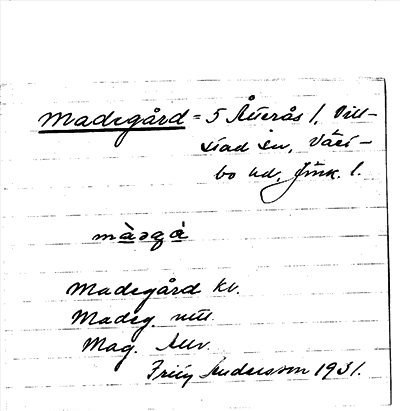 Madegård = 5 Återås 1, Vill-
stad sn, Väst-
bo hd, Jönk. l.
màᴈgà
Madegård kv.
Madeg. mtl.
Mag. Auv.
Friiz Andersson 1931.